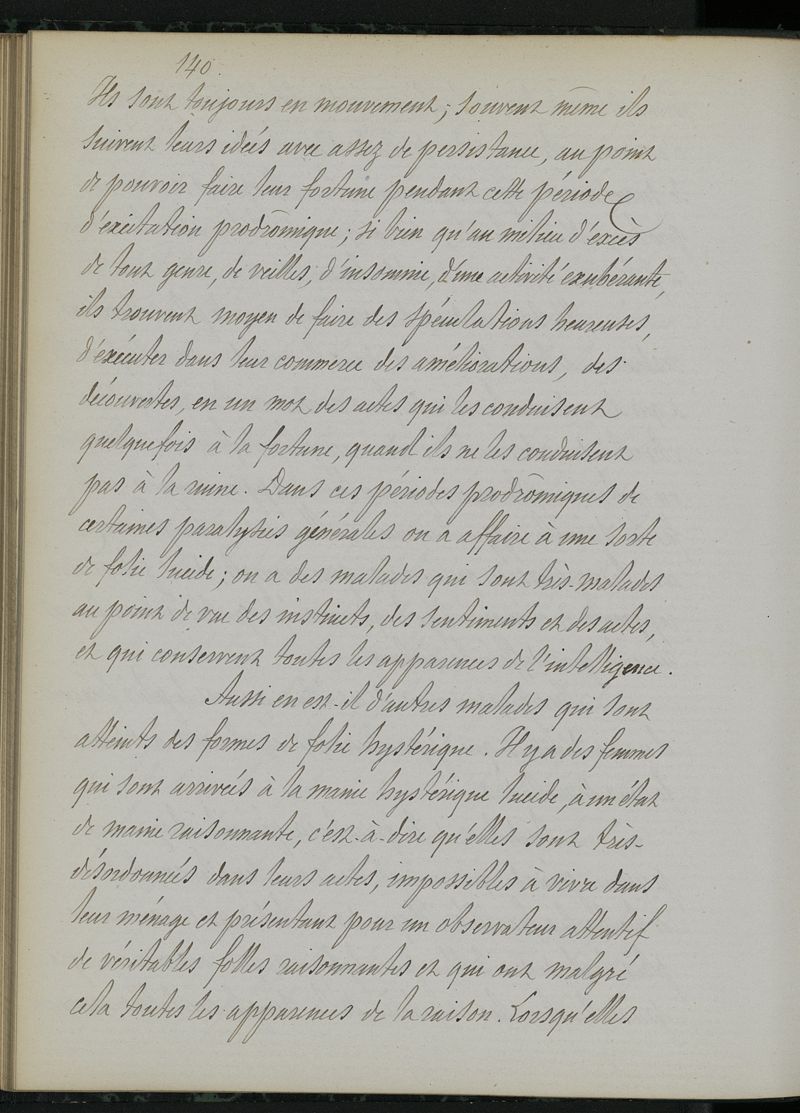 140.
Ils sont toujours en mouvement; souvent même ils
suivent leurs idées avec assez de persistance, au point
de pouvoir faire leur fortune pendant cette période
d'éxcitation prodrômique; si bien qu'au milieu d'excès
de tout genre, de veilles, d'insomnie, d'une activité exubérante,
ils trouvent moyen de faire des spéculations heureuses,
d'éxécuter dans leur commerce des améliorations, des
découvertes, en un mot des actes qui les conduisent
quelquefois à la fortune, quand ils ne les conduisent
pas à la ruine. Dans ces périodes prodrômiques de
certaines paralysies générales on a affaire à une sorte
de folie lucide; on a des malades qui sont très-malades
au point de vue des instincts, des sentiments et des actes,
et qui conservent toutes les apparences de l'intelligence.
Aussi en est-il d'autres malades qui sont
atteints des formes de folie hystérique. Il y a des femmes
qui sont arrivées à la manie hystérique lucide, à un état
de manie raisonnante, c'est-à-dire qu'elles sont très-
désordonnées dans leurs actes, impossibles à vivre dans
leur ménage et présentant pour un observateur attentif
de véritables folles raisonnantes et qui ont malgré
cela toutes les apparences de la raison. Lorsqu'elles